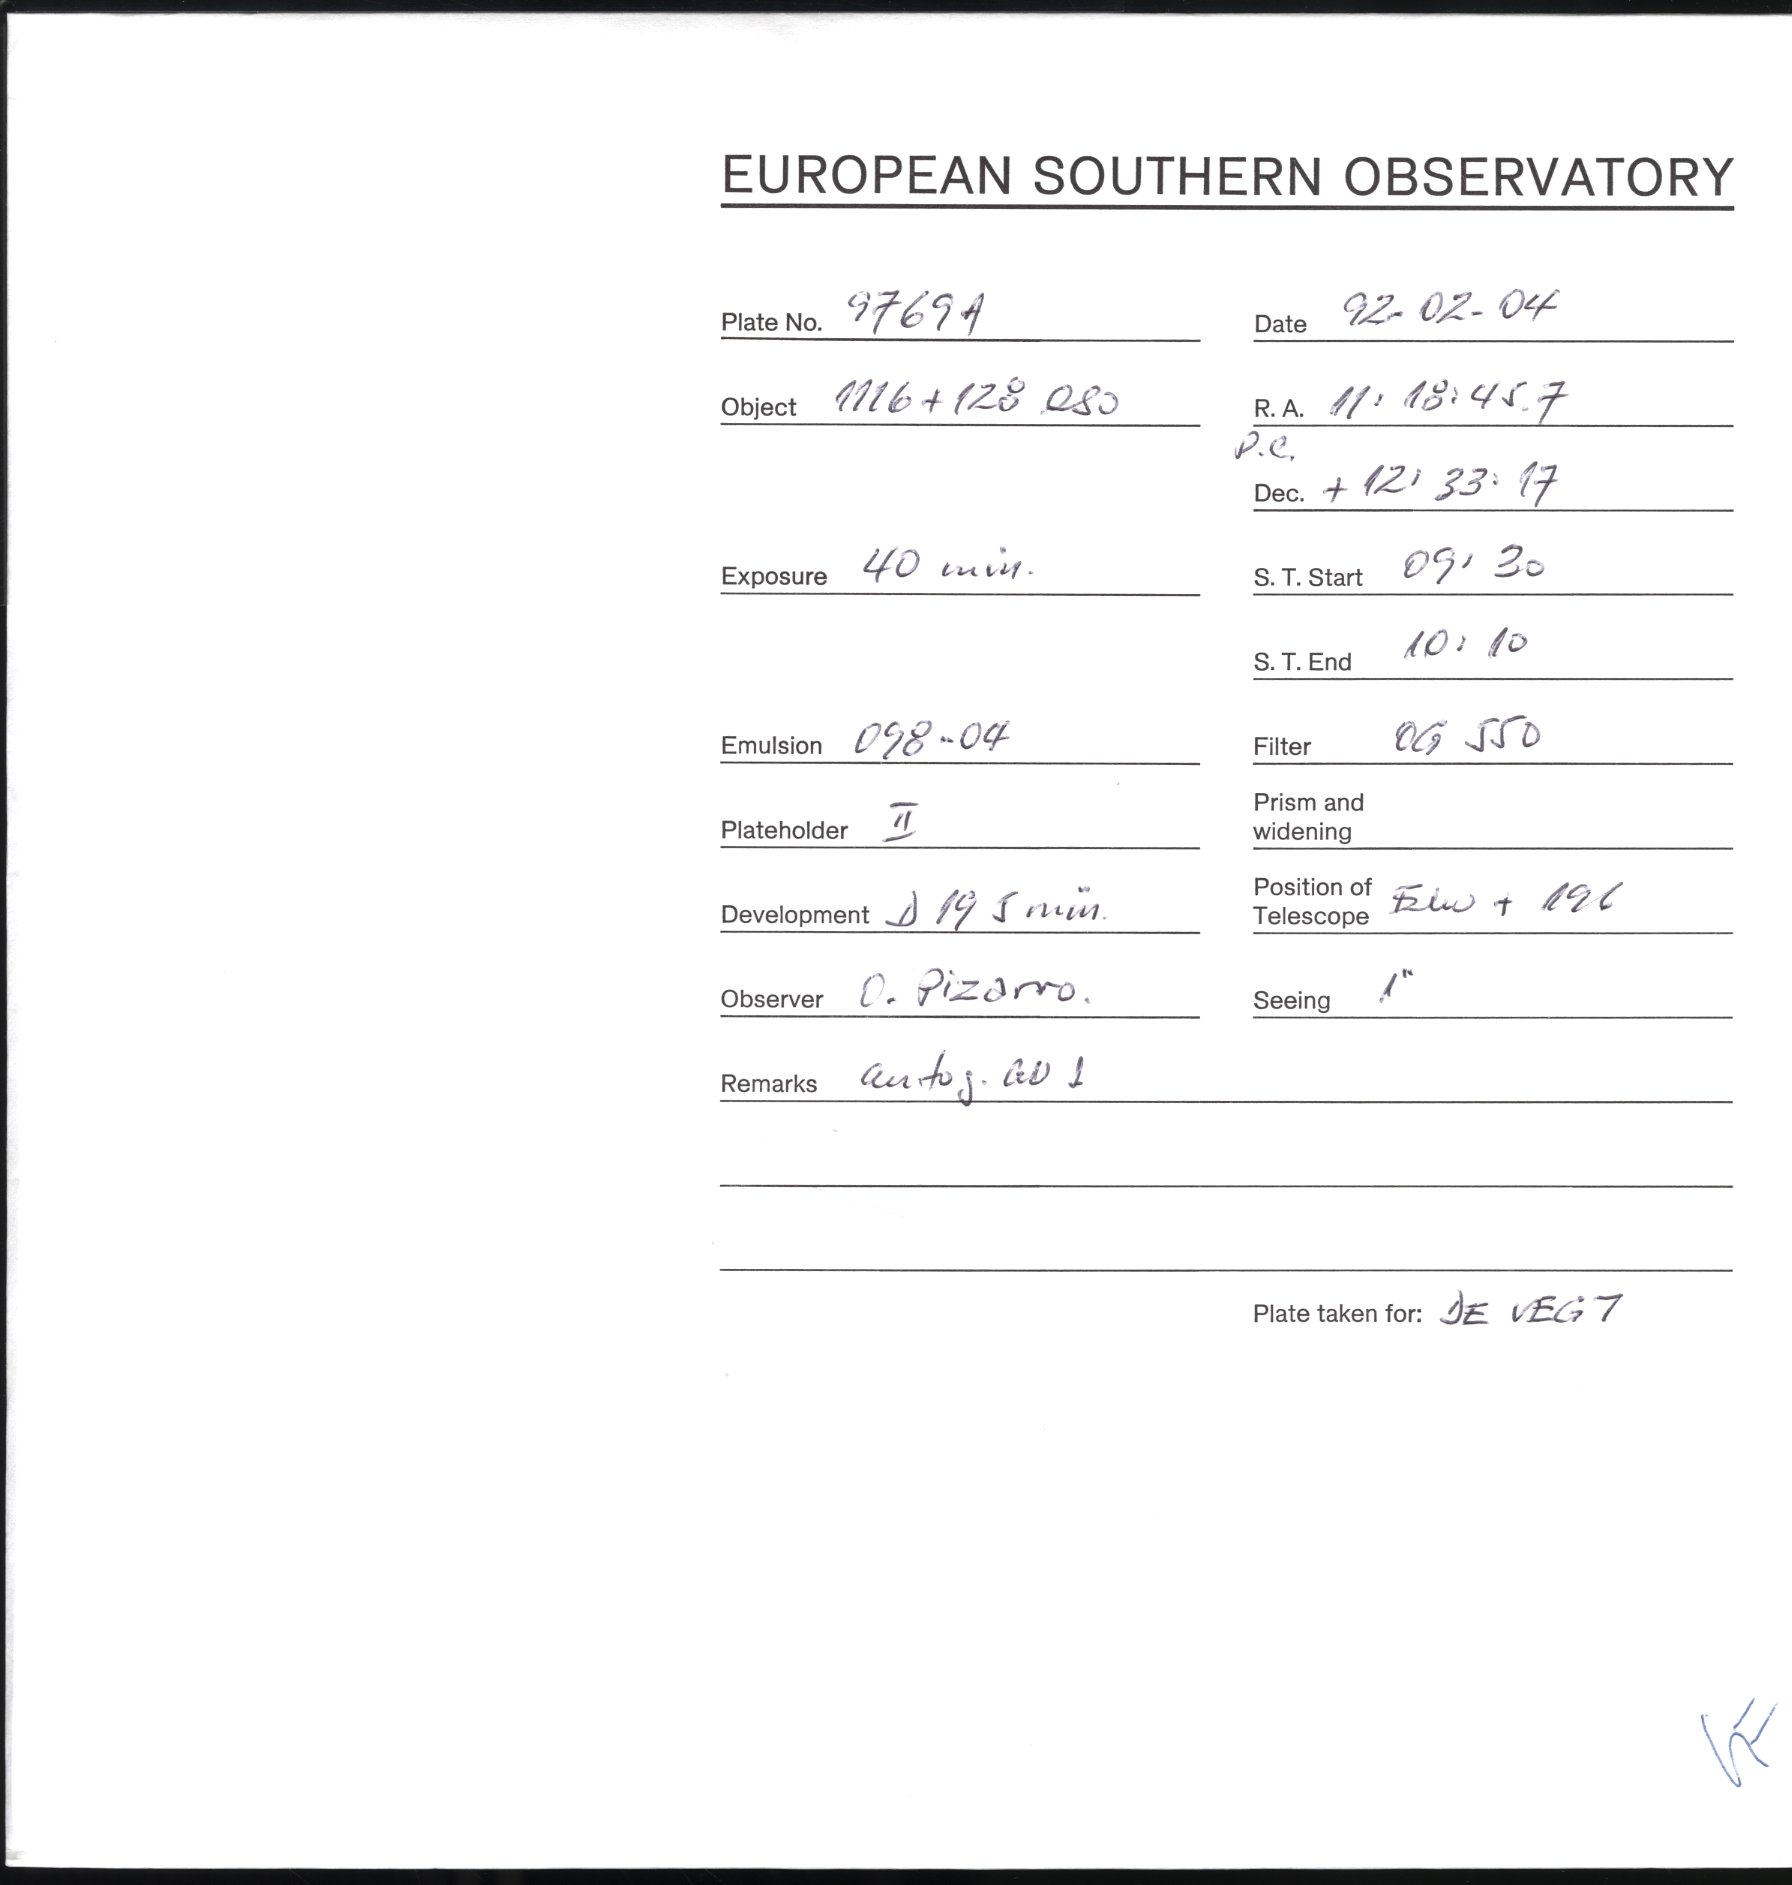 EUROPEAN SOUTHERN OBSERVATORY
Plate No. 9769A Date 92-02-04
Object 1116+128 QSO R. A. 11: 18: 45.7
P.C.
Dec. + 12: 33: 17
Exposure 40 min. S. T. Start 09: 30
S. T. End 10: 10
Emulsion 098-04 Filter OG 550
Plateholder II Prism and
widening
Development D 19 5 min. Position of
Telescope + 196
Observer O. Pizarro. Seeing 1"
Remarks autog. GD 1
Plate taken for: DE VEGT